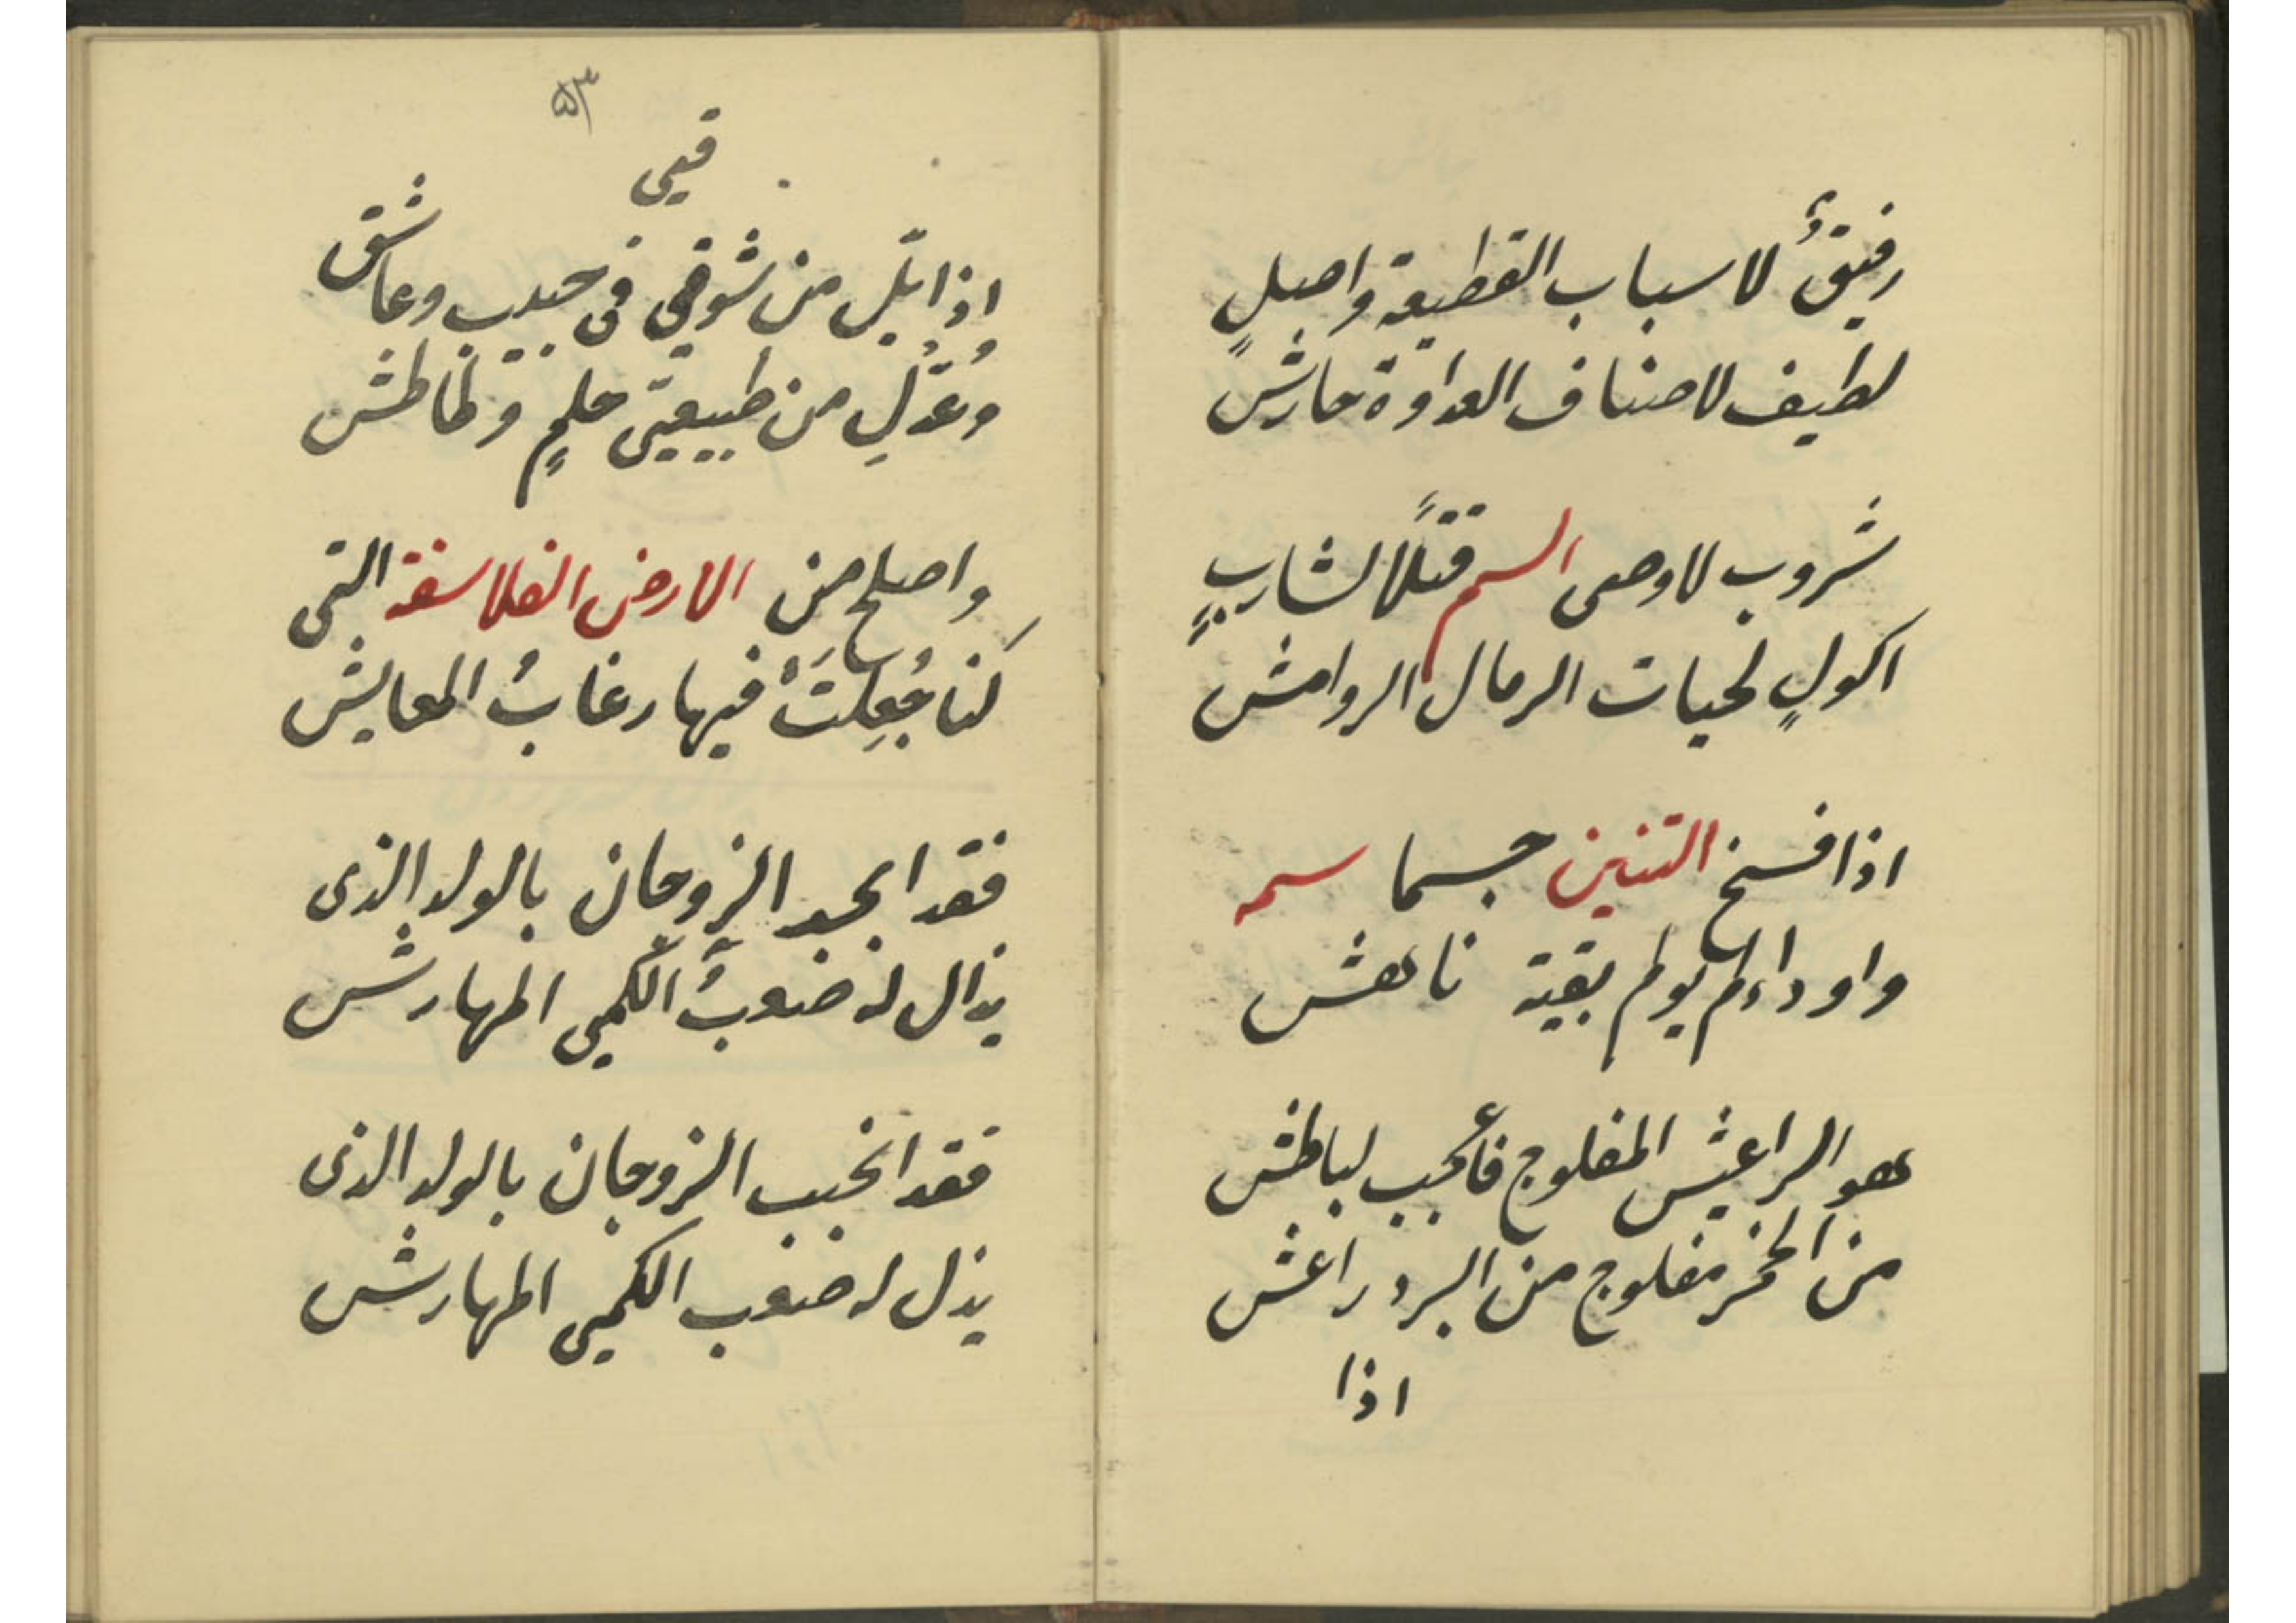 رفيقٌ لاسباب القطيعة واصلٍ
لطيف لاصناف العداوة حارش
شروب لاوحى السم قتلًا لشاربٍ
اكولٍ لحيات الرمال الروامش
اذا فسخ التنين جسما سمه
واوداء لم يولم بقية ناهش
هو الراعش المفلوج فأعجب لباطش
من الخمر مفلوج من البرد راعش
اذا
٥٣
قيى
اذا ابّل من شوقى فى حبيب وعاشق
وعُدّل من طبيعتى حلمٍ وطائش
واصلح من الارض الفلاسفة التى
كنا جُعِلَتْ فيها رغابُ المعايش
فقد انجب الزوجان بالولد الذى
يذال له صعبُ الكّمى المهارش
فقد انجب الزوجان بالولد الذى
يذل له صعب الكمى المهارش